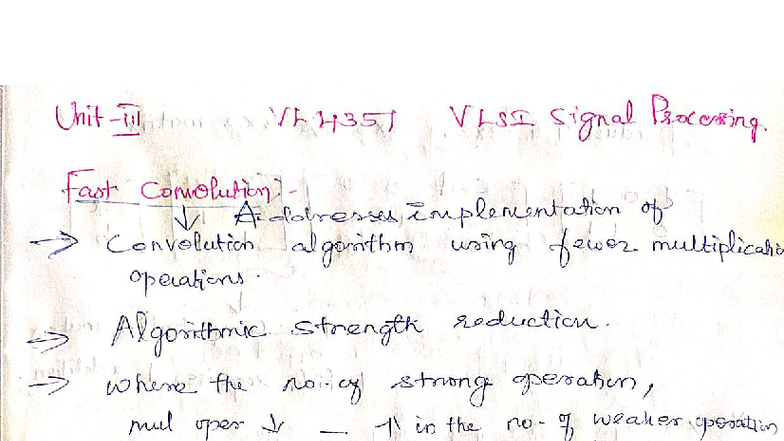 Unit-III VL4351 VLSI Signal Processing.
Fast Convolution:-
↓ Addresses implementation of
→ Convolution algorithm using fewer multiplicatio
operations.
→ Algorithmic strength reduction.
→ where the no. of strong operation,
mul oper ↓ — ↑ in the no- of weaker operation